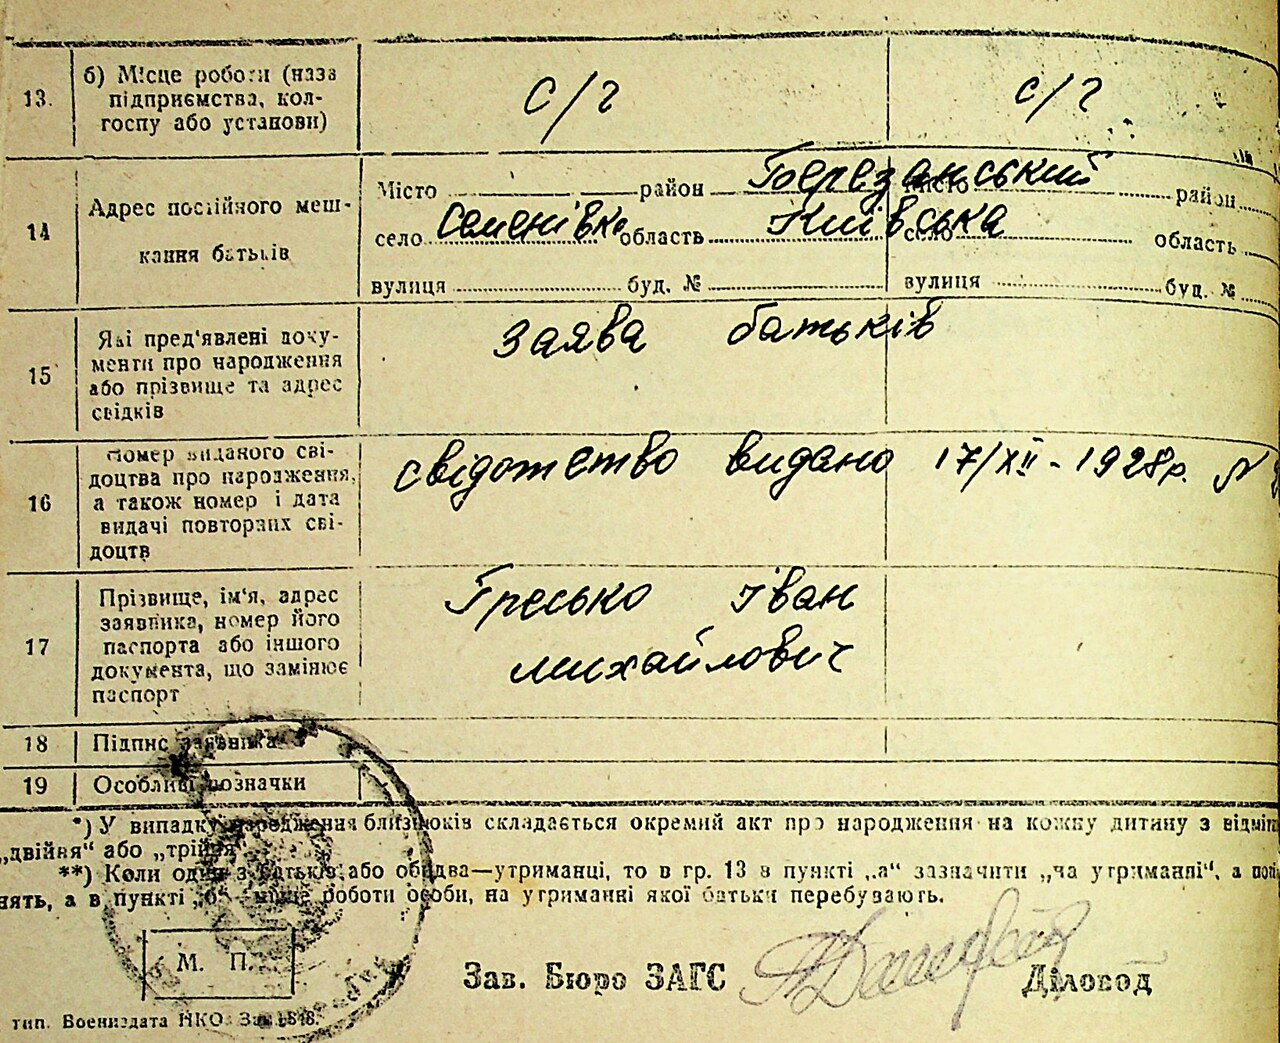 13. б) Місце роботи (назва
підприємства, кол-
госпу або установи)
с/г с/г
14 Адрес постійного меш-
кання батьків
Місто район Березанський Місто район
село Семенівка область Київська село область
вулиця буд. № вулиця буд. №
15 Які пред'явлені доку-
менти про народження
або прізвище та адрес
свідків
Заява батьків
16 Номер виданого сві-
доцтва про народження,
а також номер і дата
видачі повторних сві-
доцтв
свідотство видано 17/XII - 1928р. №
17 Прізвище, ім'я, адрес
заявника, номер його
паспорта або іншого
документа, що замінює
паспорт
Гресько Іван
Михайлович
18 Підпис заявника
19 Особливі позначки
*) У випадку народження близнюків складається окремий акт про народження на кожну дитину з відміт
„двійня“ або „трійня“
**) Коли один з батьків або обидва—утриманці, то в гр. 13 в пункті „а“ зазначити „на утриманні“, а
нять, а в пункті „б“ місце роботи особи, на утриманні якої батьки перебувають.
М. П.
Зав. Бюро ЗАГС Діловод
тип. Воениздата НКО. Зак.